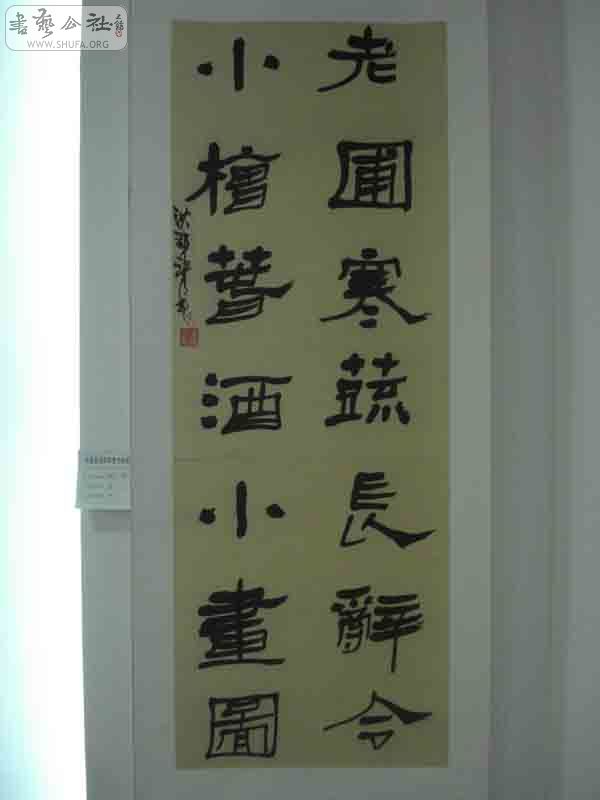 書藝公社
WWW.SHUFA.ORG
老圃寒蔬長辭令
小槽春酒小畫圖